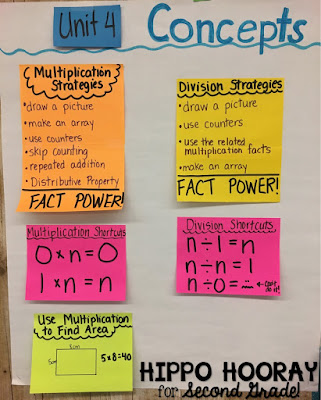 Unit 4
Concepts
Multiplication
Strategies
•draw a picture
•make an array
•use counters
•skip counting
•repeated addition
•Distributive Property
FACT POWER!
Division Strategies
•draw a picture
•use counters
•use the related
multiplication facts
•make an array
FACT POWER!
Multiplication Shortcuts
0×n=0
1×n=n
Division Shortcuts
n÷1=n
n÷n=1
n÷0=
← can't
do it!
Use Multiplication
to Find Area
8cm
5cm
5×8=40
HIPPO HOORAY
for Second Grade!